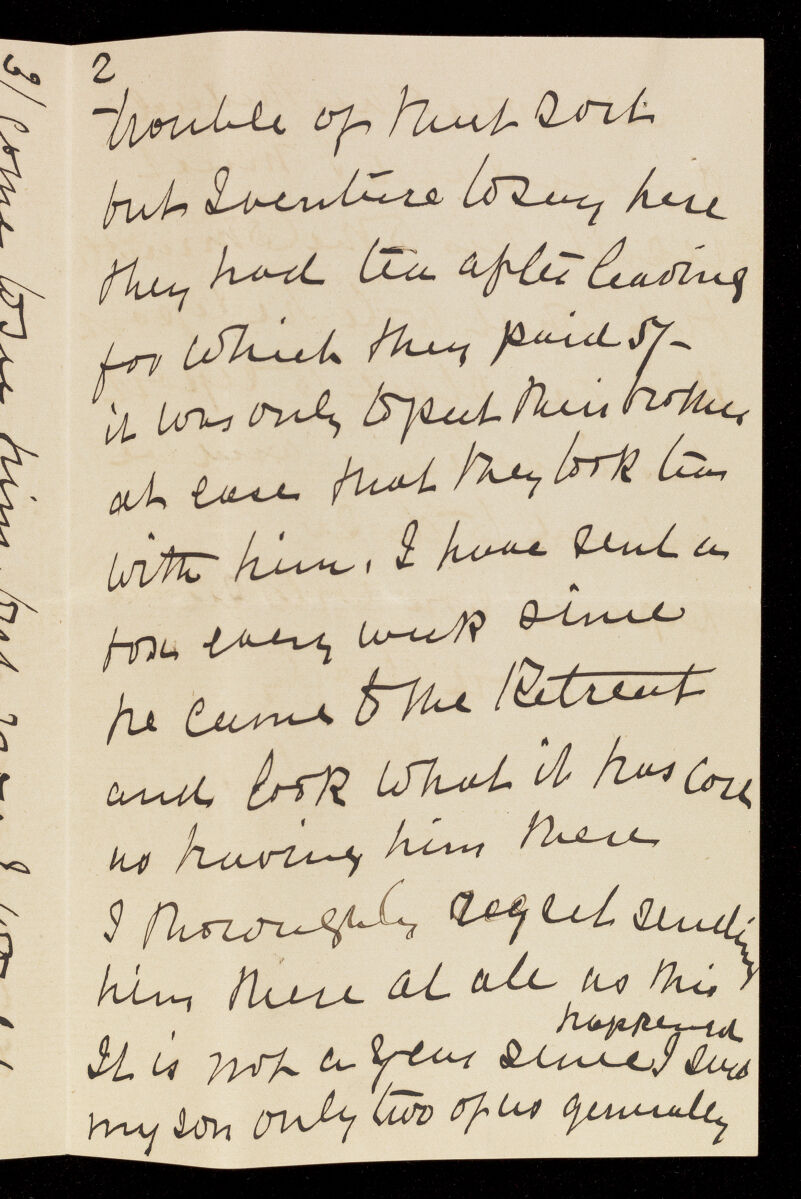 2
trouble of that sort
but I venture to say here
they had tea after leaving
for which they paid 5/-
it was only to put their brother
at ease that they took tea
with him. I have sent a
box every week since
he came to the Retreat
and look what it has cost
us having him there
I thoroughly regret sending
him there at all as this
happened
It is not a year since I saw
my son only two of us generally
3/ come to see him